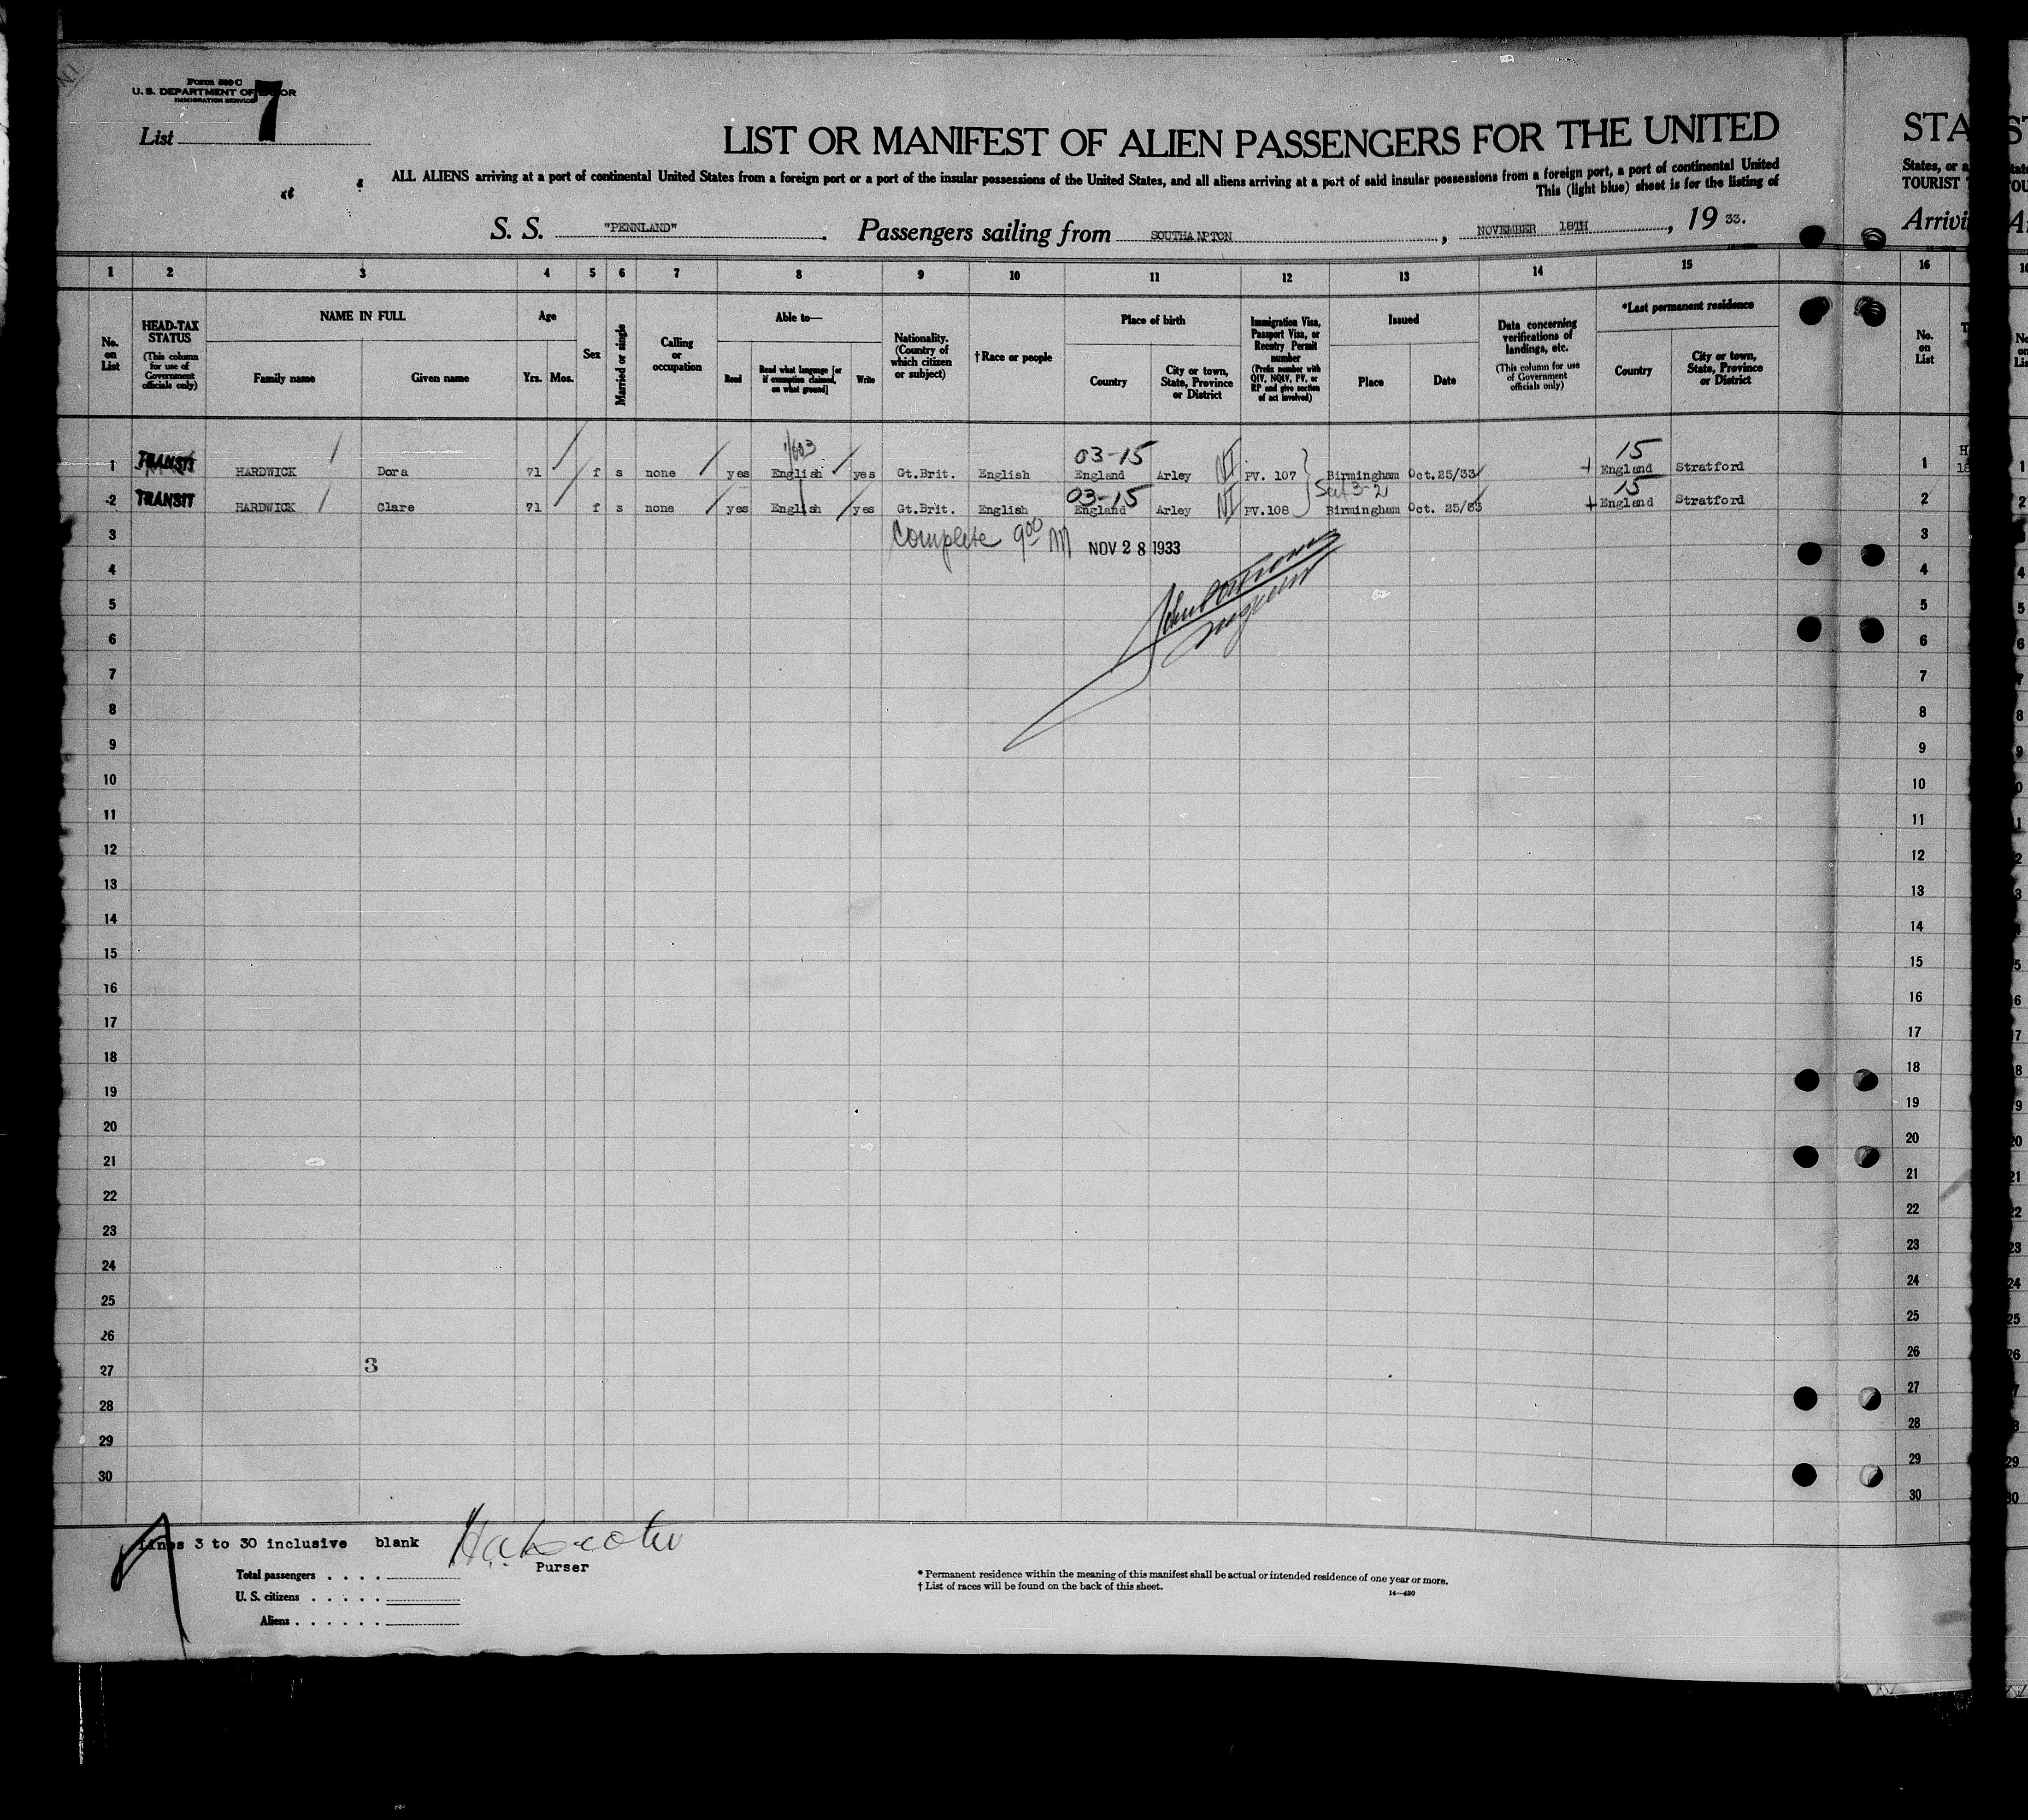 Form 500 C
U. S. DEPARTMENT OF LABOR
IMMIGRATION SERVICE
List 7
LIST OR MANIFEST OF ALIEN PASSENGERS FOR THE UNITED
STA
ALL ALIENS arriving at a port of continental United States from a foreign port or a port of the insular possessions of the United States, and all aliens arriving at a port of said insular possessions from a foreign port, a port of continental United
States, or a
This (light blue) sheet is for the listing of
TOURIST
S. S. "PENNLAND". Passengers sailing from SOUTHAMPTON, NOVEMBER 18TH, 19 33.
Arrivi
1 2 3 4 5 6 7 8 9 10 11 12 13 14 15 16
No. on List
HEAD-TAX STATUS (This column for use of Government officials only)
NAME IN FULL
Family name
Given name
Age
Yrs. Mos.
Sex
Married or single
Calling or occupation
Able to—
Read
Read what language [or if exemption claimed, on what ground]
Write
Nationality. (Country of which citizen or subject)
†Race or people
Place of birth
Country
City or town, State, Province or District
Immigration Visa, Passport Visa, or Reentry Permit number (Prefix number with QIV, NQIV, PV, or RP and give section of act involved)
Issued
Place
Date
Data concerning verifications of landings, etc. (This column for use of Government officials only)
*Last permanent residence
Country
City or town, State, Province or District
No. on List
03-15 15
1 TRANSIT HARDWICK Dora 71 f s none yes English yes Gt.Brit. English England Arley NI PV. 107 Birmingham Oct.25/33 England Stratford 1
03-15 Sec 3-2 15
2 TRANSIT HARDWICK Clare 71 f s none yes English yes Gt.Brit. English England Arley NI PV.108 Birmingham Oct. 25/33 England Stratford 2
3 Complete 900 NOV 28 1933 3
4 4
5 5
6 6
7 7
8 8
9 9
10 10
11 11
12 12
13 13
14 14
15 15
16 16
17 17
18 18
19 19
20 20
21 21
22 22
23 23
24 24
25 25
26 26
27 3 27
28 28
29 29
30 30
Lines 3 to 30 inclusive blank
Purser
Total passengers . . . .
U. S. citizens . . . . .
Aliens . . . . . .
* Permanent residence within the meaning of this manifest shall be actual or intended residence of one year or more.
† List of races will be found on the back of this sheet.
14—430